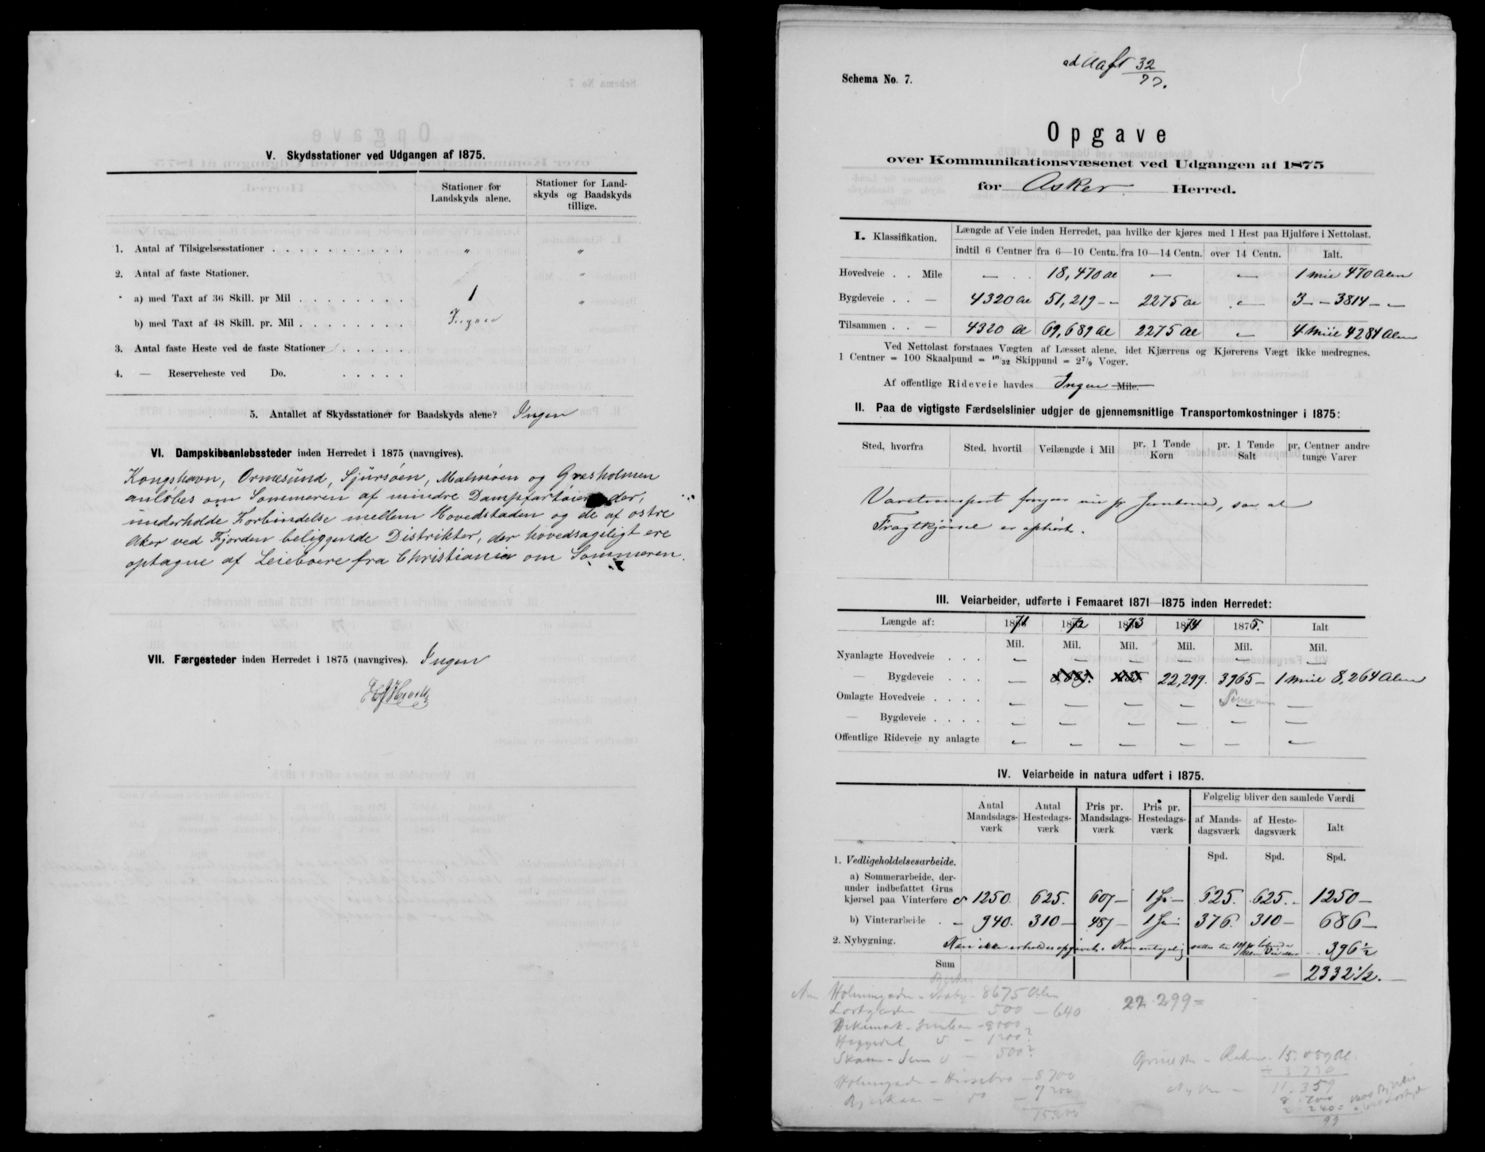 V. Skydsstationer ved Udgangen af 1875.
Stationer for Landskyds alene.
Stationer for Landskyds og Baadskyds tillige.
1. Antal af Tilsigelsesstationer . . . . . . . . . . " "
2. Antal af faste Stationer.
a) med Taxt af 36 Skill. pr Mil . . . . . . . . 1 "
b) med Taxt af 48 Skill. pr. Mil . . . . . . . . Ingen
3. Antal faste Heste ved de faste Stationer . . . . .
4. — Reserveheste ved Do. . . . . .
5. Antallet af Skydsstationer for Baadskyds alene? Ingen
VI. Dampskibsanløbssteder inden Herredet i 1875 (navngives).
Kongshavn, Ormøsund, Sjursøen, Malmøen og Græsholmen
anløbes om Sommeren af mindre Dampfartøier der,
underholde Forbindelse mellem Hovedstaden og de af østre
Aker ved Fjorden beliggende Distrikter, der hovedsageligt ere
optagne af Leieboere fra Christiania om Sommeren.
VII. Færgesteder inden Herredet i 1875 (navngives). Ingen
Schema No. 7.
ad 32/77.
Opgave
over Kommunikationsvæsenet ved Udgangen af 1875
for Asker Herred.
I. Klassifikation.
Længde af Veie inden Herredet, paa hvilke der kjøres med 1 Hest paa Hjulføre i Nettolast.
indtil 6 Centner fra 6—10 Centn. fra 10—14 Centn. over 14 Centn. Ialt.
Hovedveie . . Mile — 18,470 al — — 1 Mil 470 Alen
Bygdeveie . . — 4320 al 51,219 - - 2275 al — 3 - - 3814 - -
Tilsammen . . — 4320 al 69,689 al 2275 al — 4 Mile 4284 Alen
Ved Nettolast forstaaes Vægten af Læsset alene, idet Kjærrens og Kjørerens Vægt ikke medregnes.
1 Centner = 100 Skaalpund = 10/32 Skippund = 2 7/9 Voger.
Af offentlige Rideveie havdes Ingen Mile.
II. Paa de vigtigste Færdselslinier udgjør de gjennemsnitlige Transportomkostninger i 1875:
Sted, hvorfra Sted, hvortil Veilængde i Mil pr. 1 Tønde Korn pr. 1 Tønde Salt pr. Centner andre tunge Varer
Varetransport foregaar nu pr Jernbane, saa at
Fragtkjørsel er ophørt.
III. Veiarbeider, udførte i Femaaret 1871—1875 inden Herredet:
Længde af: 1871 1872 1873 1874 1875. Ialt
Mil. Mil. Mil. Mil. Mil. Mil.
Nyanlagte Hovedveie . . . — — — — — —
— Bygdeveie . . . — 22,299. 3965 — 1 Mil 8,264 Alen
Omlagte Hovedveie . . . . — — — — —
— Bygdeveie . . . . — — — — — —
Offentlige Rideveie ny anlagte — — — — — —
IV. Veiarbeide in natura udført i 1875.
Antal Mandsdagsværk
Antal Hestedagsværk
Pris pr. Mandsdagsværk
Pris pr. Hestedagsværk
Følgelig bliver den samlede Værdi
af Mandsdagsværk af Hestedagsværk Ialt
Spd. Spd. Spd.
1. Vedligeholdelsesarbeide.
a) Sommerarbeide, derunder
indbefattet Grus
kjørsel paa Vinterføre 1250. 625. 60 — 1 — 625. 625. 1250 —
b) Vinterarbeide . — 940. 310 — 48 — 1 — 376. 310 — 686 —
2. Nybygning. 396 ½
Sum — 2332 ½.
8675 Alen
500 — 640
22.299 =
500?
8700
7200
15.059 Al.
11.359